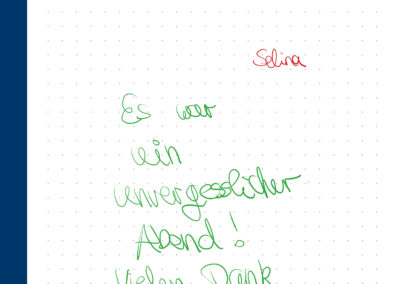 Selina
Es war
ein
unvergesslicher
Abend!
Vielen Dank